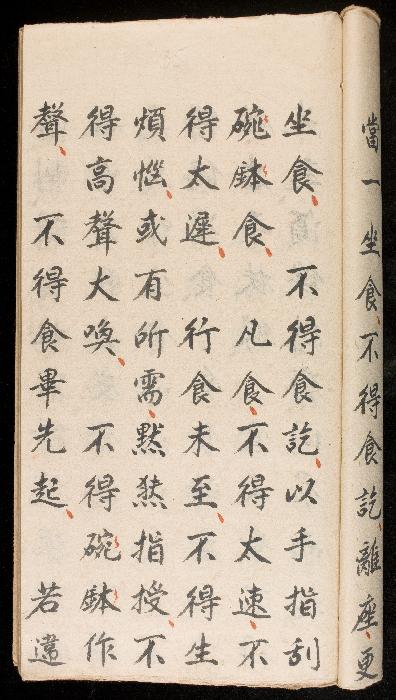 當一坐食不得食訖離座更
坐食 不得食訖以手指刮
碗鉢食 凡食不得太速不
得太遲 行食未至不得生
煩惱或有所需默然指授不
得高聲大喚 不得碗鉢作
聲 不得食畢先起 若違